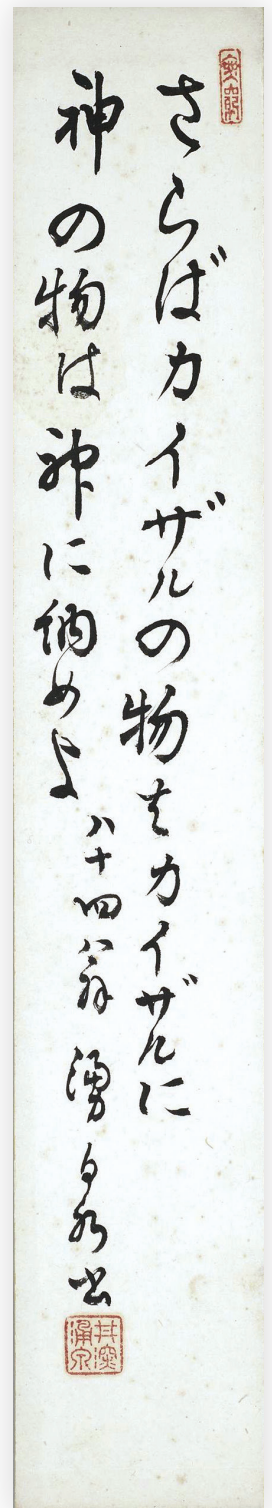 さらばカイザルの物はカイザルに
神の物は神に納めよ
八十四八翁 湧泉書